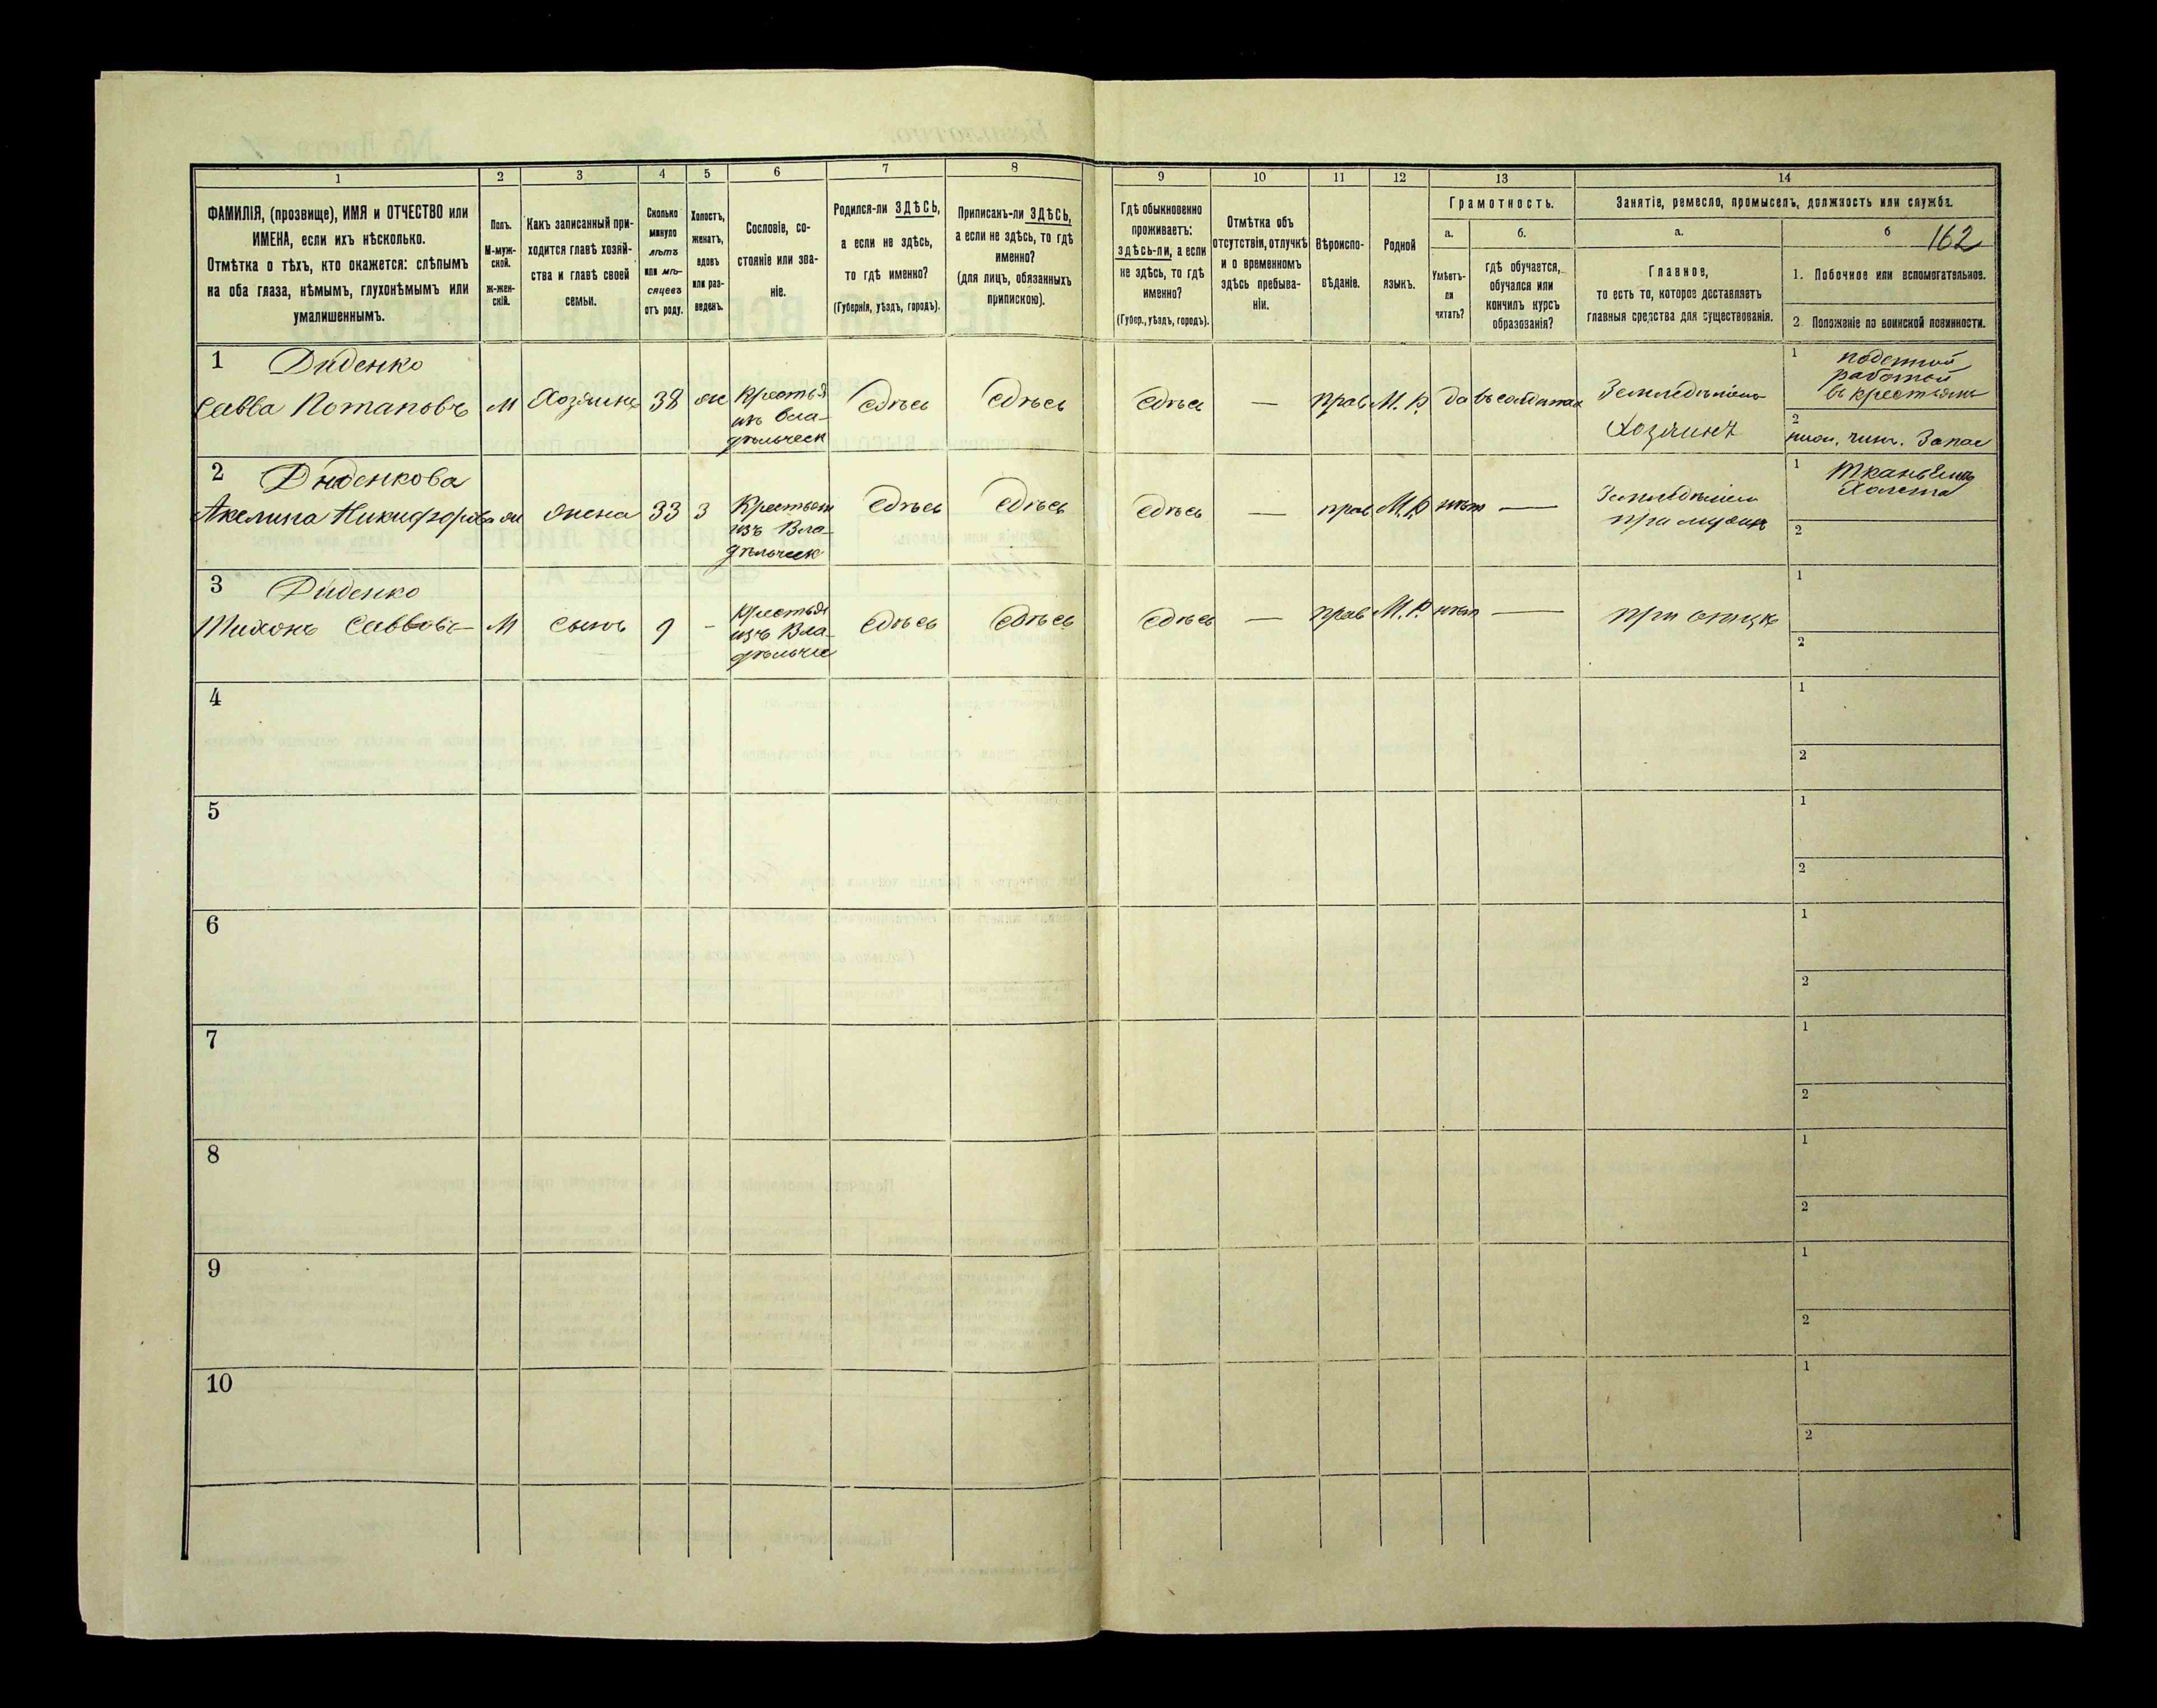 1
2
3
4
5
6
7
8
9
10
11
12
13
14
ФАМИЛІЯ, (прозвище), ИМЯ и ОТЧЕСТВО или
ИМЕНА, если ихъ нѣсколько.
Отмѣтка о тѣхъ, кто окажется: слѣпымъ
на оба глаза, нѣмымъ, глухонѣмымъ или
умалишеннымъ.
Полъ.
М-муж-
ской.
ж-жен-
скій.
Какъ записанный при-
ходится главѣ хозяй-
ства и главѣ своей
семьи.
Сколько
минуло
лѣтъ
или мѣ-
сяцевъ
отъ роду.
Холостъ,
женатъ,
вдовъ
или раз-
веденъ.
Сословіе, со-
стояніе или зва-
ніе.
Родился-ли ЗДѢСЬ,
а если не здѣсь,
то гдѣ именно?
(Губернія, уѣздъ, городъ).
Приписанъ-ли ЗДѢСЬ,
а если не здѣсь, то гдѣ
именно?
(для лицъ, обязанныхъ
припискою).
Гдѣ обыкновенно
проживаетъ:
здѣсь-ли, а если
не здѣсь, то гдѣ
именно?
(Губер., уѣздъ, городъ).
Отмѣтка объ
отсутствіи, отлучкѣ
и о временномъ
здѣсь пребыва-
ніи.
Вѣроиспо-
вѣданіе.
Родной
языкъ.
Грамотность.
а.
Умѣетъ-
ли
читать?
б.
гдѣ обучается,
обучался или
кончилъ курсъ
образованія?
Занятіе, ремесло, промыселъ, должность или служба.
а.
Главное,
то есть то, которое доставляетъ
главныя средства для существованія.
б 162
1. Побочное или вспомогательное.
2. Положеніе по воинской повинности.
1 Диденко
Савва Потаповъ
М
Хозяинъ
38
ж
Крестья
изъ вла-
дѣльческ
Сдѣсь
Сдѣсь
Сдѣсь
—
прав
М. Р.
да
въ солдатах
Земледѣліемъ
Хозяинъ
1 поденной
работой
въ крестьянъ
2
Запас
2 Диденкова
Акелина Никифорова
ж
жена
33
з
Крестьян
изъ Вла-
дѣльческ
Сдѣсь
Сдѣсь
Сдѣсь
—
прав
М. Р
нѣт
—
Земледѣліем
при мужѣ
1 Тканьемъ
Холста
2
3 Диденко
Тихонъ Саввовъ
М
сынъ
9
-
Крестья
изъ Вла-
дѣльче
Сдѣсь
Сдѣсь
Сдѣсь
—
прав
М. Р.
нѣт
—
при отцѣ
1
2
4
1
2
5
1
2
6
1
2
7
1
2
8
1
2
9
1
2
10
1
2